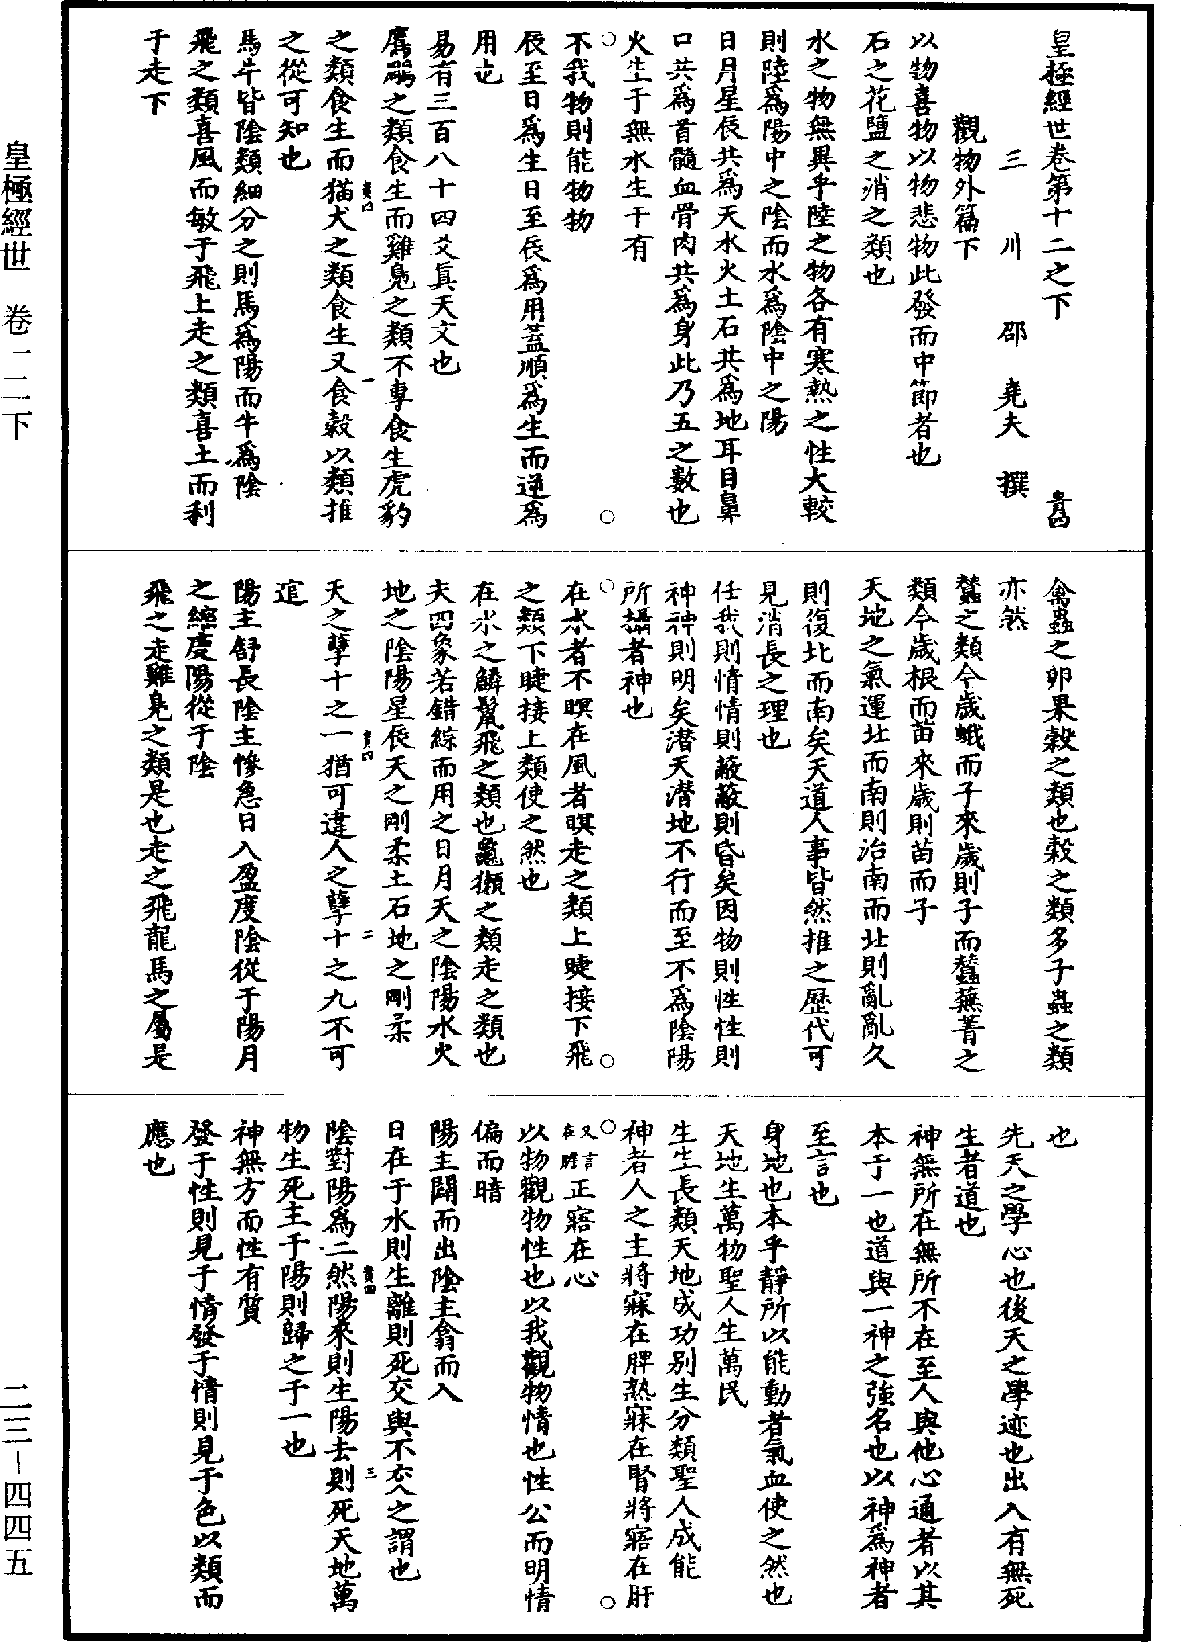 皇極經世卷第十二之下 貴四
三川 邵 堯夫 撰
觀物外篇下
以物喜物以物悲物此發而中節者也
石之花鹽之消之類也
水之物無異乎陸之物各有寒熱之性大較
則陸爲陽中之陰而水爲陰中之陽
日月星辰共爲天水火土石共爲地耳目鼻
口共爲首髓血骨肉共爲身此乃五之數也
火生于無水生于有
不我物則能物物
辰至日爲生日至辰爲用蓋順爲生而逆爲
用也
易有三百八十四爻真天文也
鷹鸇之類食生而雞鳧之類不專食生虎豹
之類食生而猫犬之類食生又食穀以類推
貴四 一
之從可知也
馬牛皆陰類細分之則馬爲陽而牛爲陰
飛之類喜風而敏于飛上走之類喜土而利
于走下
禽蟲之卵果穀之類也穀之類多子蟲之類
亦然
蠶之類今歲蛾而子來歲則子而蠶蕪菁之
類今歲根而苗來歲則苗而子
天地之氣運北而南則治南而北則亂亂久
則復北而南矣天道人事皆然推之歷代可
見消長之理也
任我則情情則蔽蔽則昏矣因物則性性則
神神則明矣潛天潛地不行而至不爲陰陽
所攝者神也
在水者不瞑在風者瞑走之類上睫接下飛
之類下睫接上類使之然也
在水之鱗鬣飛之類也龜獺之類走之類也
夫四象若錯綜而用之日月天之陰陽水火
地之陰陽星辰天之剛柔土石地之剛柔
天之孽十之一猶可違人之孽十之九不可
貴四 二
逭
陽主舒長陰主慘急日入盈度陰從于陽月
之縮度陽從于陰
飛之走雞鳧之類是也走之飛龍馬之屬是
也
先天之學心也後天之學迹也出入有無死
生者道也
神無所在無所不在至人與他心通者以其
本于一也道與一神之強名也以神爲神者
至言也
身地也本乎靜所以能動者氣血使之然也
天地生萬物聖人生萬民
生生長類天地成功別生分類聖人成能
神者人之主將寐在脾熟寐在腎將寤在肝
又言在膽正寤在心
以物觀物性也以我觀物情也性公而明情
偏而暗
陽主闢而出陰主翕而入
日在于水則生離則死交與不交之謂也
貴四 三
陰對陽爲二然陽來則生陽去則死天地萬
物生死主于陽則歸之于一也
神無方而性有質
發于性則見于情發于情則見于色以類而
應也
皇極經世 卷一二下
二三—四四五